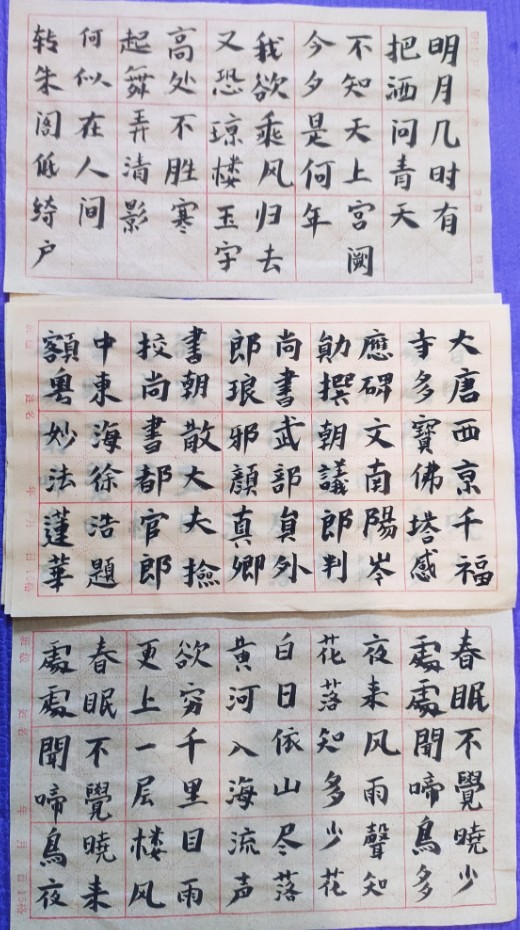 明月几时有
把洒问青天
不知天上宫阙
今夕是何年
我欲乘风归去
又恐琼楼玉宇
高处不胜寒
起舞弄清影
何似在人间
转朱阁低绮户
大唐西京千福
寺多寶佛塔感
應碑文南陽岑
勛撰朝議郎判
尚書武部員外
郎琅邪顏真卿
書朝散大夫撿
校尚書都官郎
中東海徐浩題
額粵妙法蓮華
春眠不覺曉少
處處聞啼鳥多
夜来风雨聲知
花落知多少花
白日依山尽落
黄河入海流声
欲穷千里目雨
更上一层楼风
春眠不覺曉来
處處聞啼鳥夜